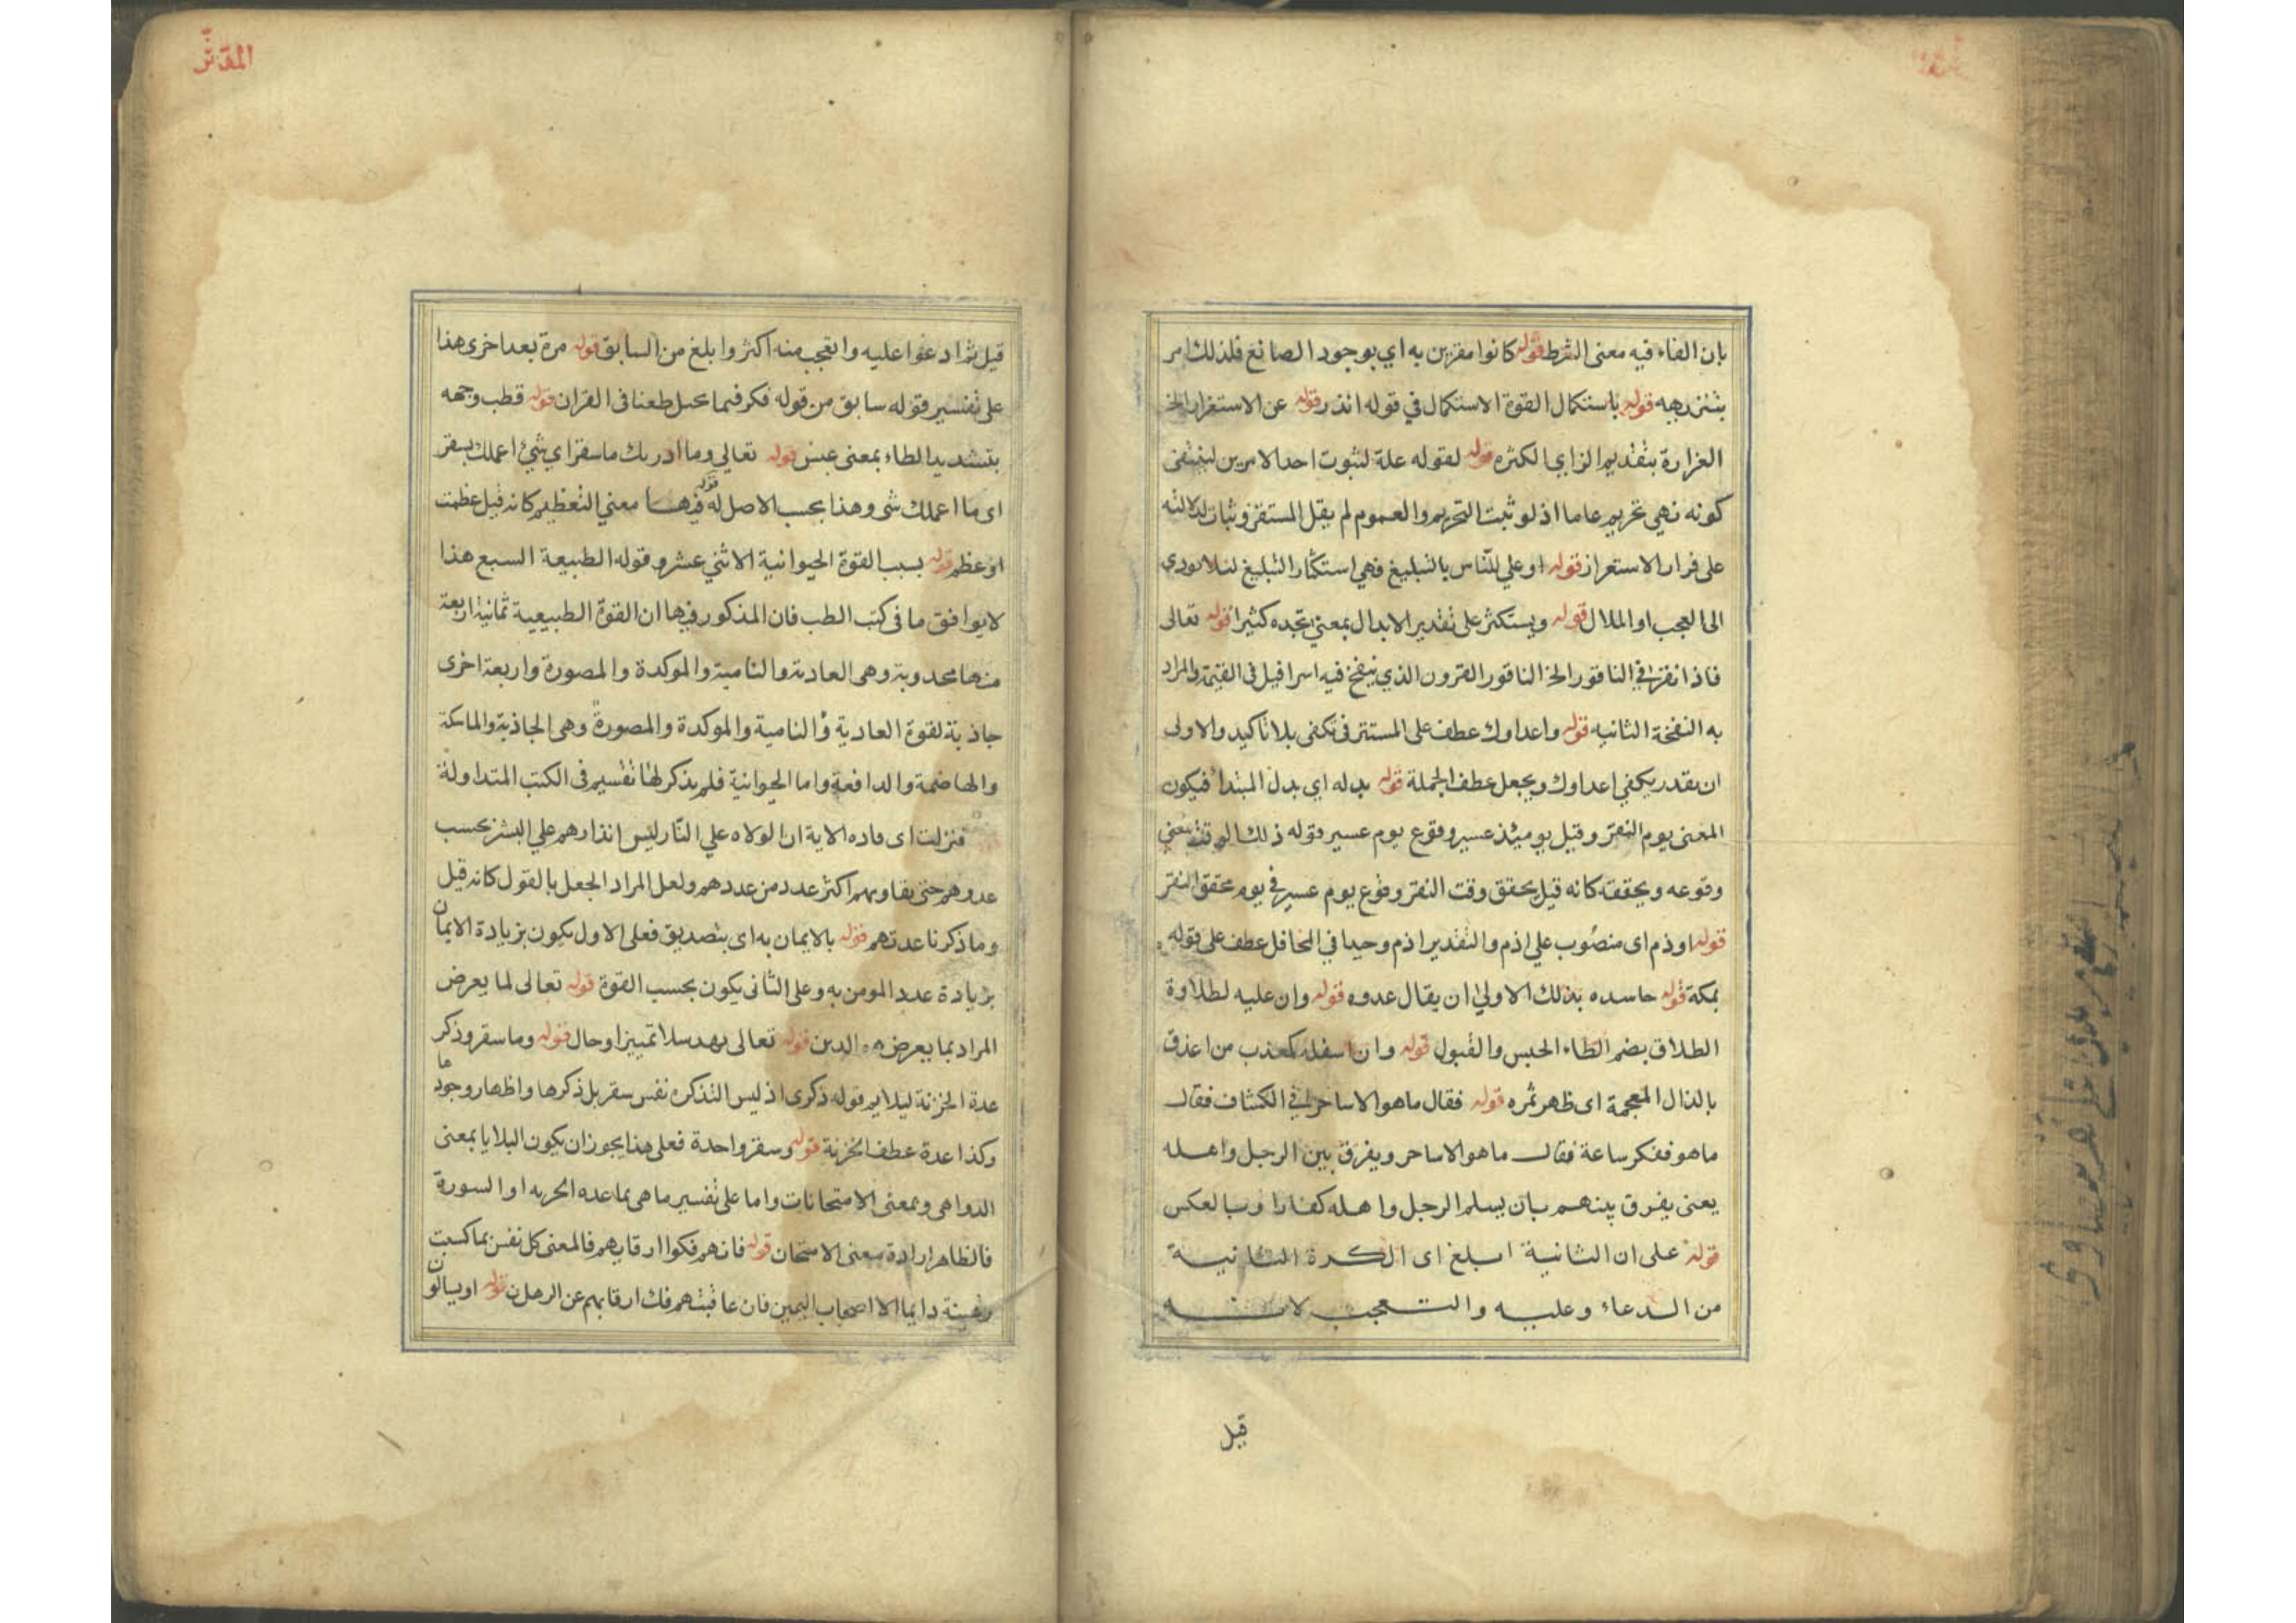 بان الفاء فيه معنى الشرط قوله كانوا مقرين به اي بوجود الصانع فلذلك امر
بتنزيهه قوله باستكمال القوة الاستكمال في قوله انذر قوله عن الاستغزار الخ
الغزارة بتقديم الزاي الكثره قوله لقوله علة لثبوت احد الامرين لينتفى
كونه نهي تحريم عاما اذ لو ثبت التحريم والعموم لم يقل المستغزر يثاب لدلالته
على قرار الاستغزار قوله او علي للناس بالتبليغ فهي استكثار التبليغ لئلا يودي
الى العجب او الملال قوله ويستكثر على تقدير الابدال بمعنى تجده كثيرا قوله تعالى
فاذا نقر في الناقور الخ الناقور القرون الذي ينفخ فيه اسرافيل فى القيمة والمراد
به النفخة الثانيه قوله واعداوك عطف على المستتر فى تكفى بلا تاكيد والاولى
ان يقدر يكفي اعداوك ويجعل عطف الجملة قوله بدله اي بدل المبتدا فيكون
المعنى يوم النقر وقيل يوميئذ عسير وقوع يوم عسير قوله ذلك الوقت يعني
وقوعه ويحققه كانه قيل يحقق وقت النقر وقوع يوم عسير في يوم محقق النقر
قوله اوذم اى منصوب علي اذم والتقدير اذم وحيدا في المحافل عطف على قوله
بمكة قوله حاسده بذلك الاولي ان يقال عدوه قوله وان عليه لطلاوة
الطلاق بضم الطاء الحبس والقبول قوله وان اسفله كمعذب من اعذق
بالذال المعجمة اى ظهر ثمره قوله فقال ماهو الا ساحر في الكشاف فقال
ماهو ففكر ساعة فقال ماهو الا ساحر ويفرق بين الرجل واهله
يعنى يفرق بينهم بان يسلم الرجل واهله كفارا وبالعكس
قوله على ان الثانية ابلغ اى الكرة الثانية
من الدعاء وعليه والتعجب لانه
قيل
المدثر
قيل ثم ادعوا عليه والتعجب منه اكثر وابلغ من السابق قوله مرة بعد اخرى هذا
على تفسير قوله سابق من قوله فكر فيما يخيل طعنا فى القران قوله قطب وجهه
بتشديد الطاء بمعنى عبس قوله تعالي وما ادريك ماسقر اي شيئ اعملك بسقر
اى ما اعملك شى وهذا بحسب الاصل له قوله فيها معني التعظيم كانه قيل عظمت
او عظم قوله بسبب القوة الحيوانية الاثني عشر وقوله الطبيعة السبع هذا
لا يوافق ما فى كتب الطب فان المذكور فيها ان القوة الطبيعية ثمانية اربعة
منها مخدوبة وهى العادية والنامية والموكدة والمصورة واربعة اخرى
جاذبة لقوة العادية والنامية والموكدة والمصورة وهى الجاذبة والماسكة
والهاضمة والدافعة واما الحيوانية فلم يذكر لها تقسيم فى الكتب المتداولة
فنزلت اى فاده الاية ان الولاه علي النار ليس انذارهم علي البشر بحسب
عددهم حتى يقاويهم اكثر عدد من عددهم ولعل المراد الجعل بالقول كانه قيل
وما ذكرنا عدتهم قوله بالايمان به اى بتصديق فعلى الاول يكون بزيادة الايمان
بزيادة عدد المومن به وعلى الثانى يكون بحسب القوة قوله تعالى لما يعرض
المراد بما يعرض الدين قوله تعالى بهذا مثلا تمييز اوحال قوله وما سقر وذكر
عدة الخزنة ليلايم قوله ذكرى اذ ليس التذكره نفس سقر بل ذكرها واظهار وجودها
وكذا عدة عطف الخزنة قوله وسقر واحدة فعلى هذا يجوز ان يكون البلايا بمعنى
الدواهى وبمعنى الامتحانات واما على تفسير ماهى بما عده الخزنه او السورة
فالظاهر ارادة معنى الامتحان قوله فانهم فكوا ارقابهم فالمعنى كل نفس بما كسبت
رهينة دايما الا اصحاب اليمين فان عاقبتهم فك ارقابهم عن الرهن قوله اويسالون